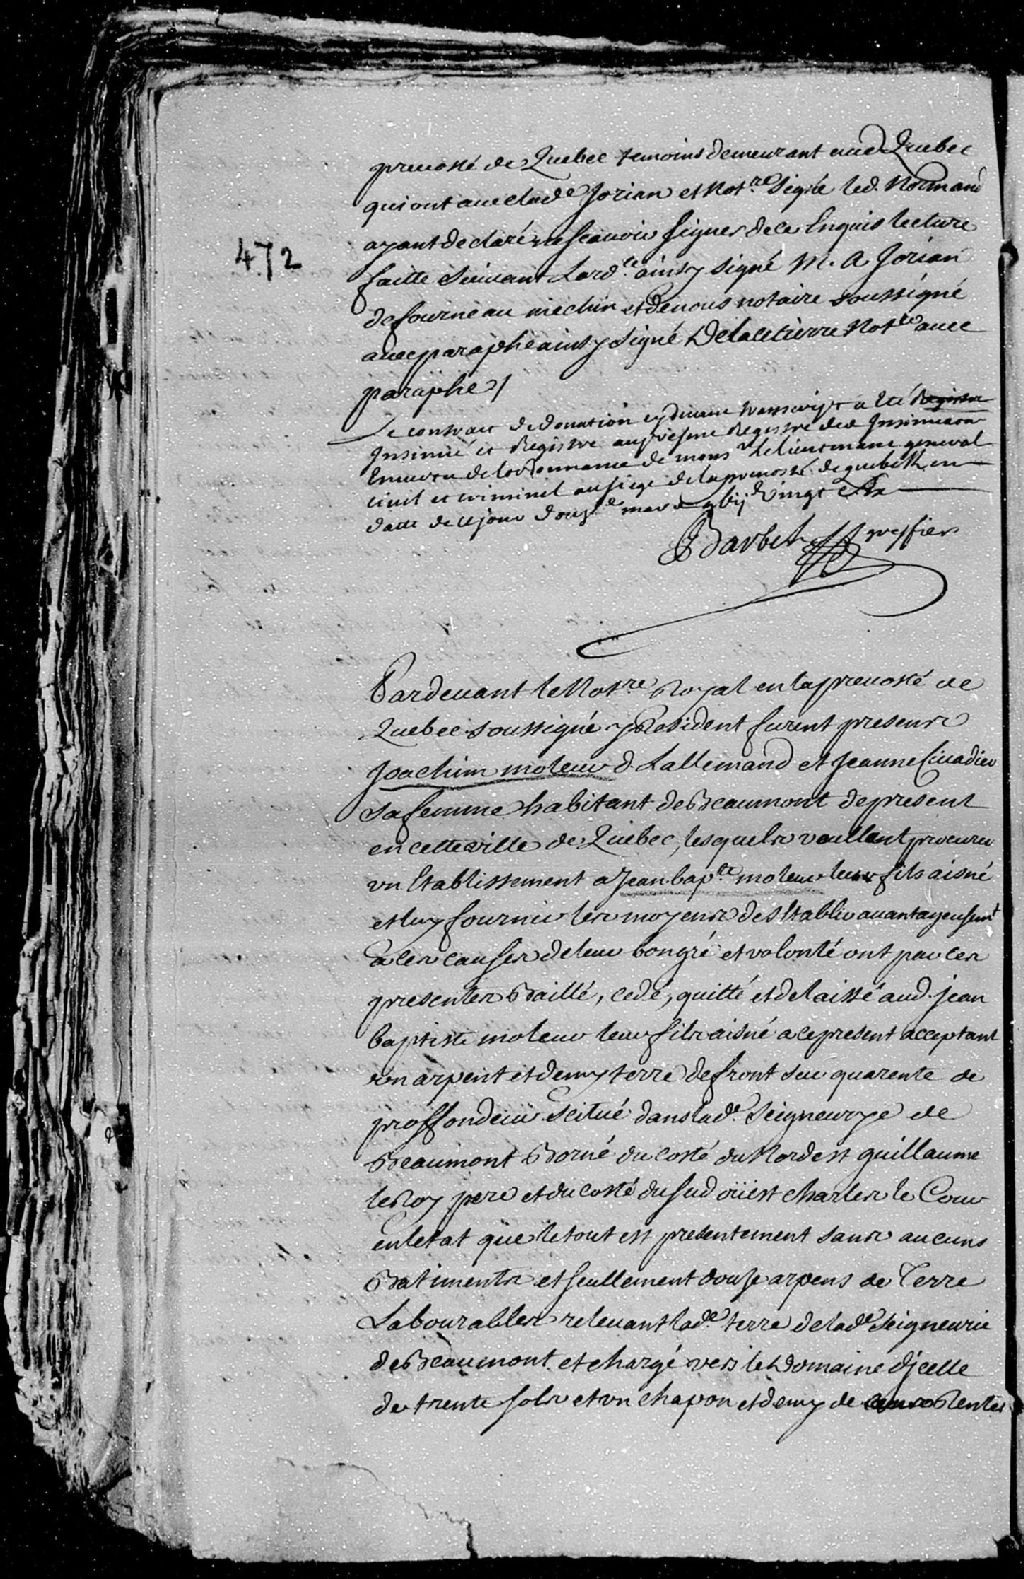 prevosté de Quebec temoins demeurant aud Quebec
qui ont avec lad.e Jorian et Not.re signé led. Normand
ayant declaré ne scavoir signer de ce Enquis lecture
472
faitte suivant Lord.ce ainsy signé M. A Jorian
de fourneau mechin et de nous notaire soussigné
avec paraphe ainsy signé Delacetierre Not.re avec
paraphe /
Le contrait de donation cydevant transcript a eté
Insinué et Registre au present Registre des Insinuaon
En vertu de lordonnance de mons.r Le lieutenant general
civil et criminel au siege de la prevosté de quebek en
datte de ce jour douz.e mars vingt
Barbel greffier
Pardevant le Notre Royal en la prevosté de
Quebec soussigné y Resident furent presens
Joachim moleur d Lallemand et Jeanne Civadier
sa femme habitant de Beaumont de present
en cette ville de Quebec, lesquels voullant procurer
un Etablissement a Jean bap.te moleur leur fils aisné
et luy fournir les moyens de s'Etablir avantageusem.t
a ces causes de leur bon gré et volonté ont par ces
presentes Baillé, cedé, quitté et delaissé aud jean
baptiste moleur leur fils aisné a ce present acceptant
un arpent et demy terre de front sur quarente de
proffondeur scitué dans lad.e seigneurye de
Beaumont Borné du costé du Nordest guillaume
le Roy pere et du costé du sud oüest charles le Cour
en letat que le tout est presentement sans aucuns
Batiments et seullement douse arpens de Terre
Labourables relevant lad.e terre de lad.e seigneurie
de Beaumont et chargé vers le Domaine d'jcelle
de trente sols et un chapon et demy de cens Rentes